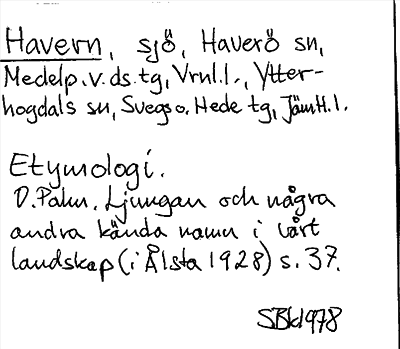 Havern, sjö, Haverö sn,
Medelp. v. ds. tg, Vrnl. l., Ytter-
hogdals sn, Svegs o. Hede tg, Jämtl. l.
Etymologi.
D. Palm, Ljungan och några
andra kända namn i vårt
landskap (i Ålsta 1928) s. 37.
SBl 1978